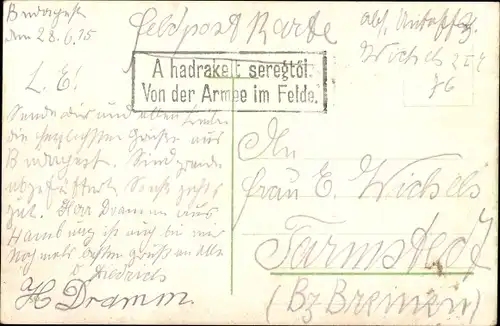 Budapest
den 28.6.15
Feldpost Karte
abs. Untoffz.
Wichels
76
A hadrakelt seregtöl.
Von der Armee im Felde.
L. E!
Sende dir und allen Lieben
die herzlichsten Grüße aus
Budapest. Sind grade
abgefüttert. Sonst gehts
gut. Herr Dramm aus
Hamburg ist auch bei mir
Nochmals besten Gruß an alle
H Dramm.
An
Frau E. Wichels
Tarmstedt
(Bz Bremen)